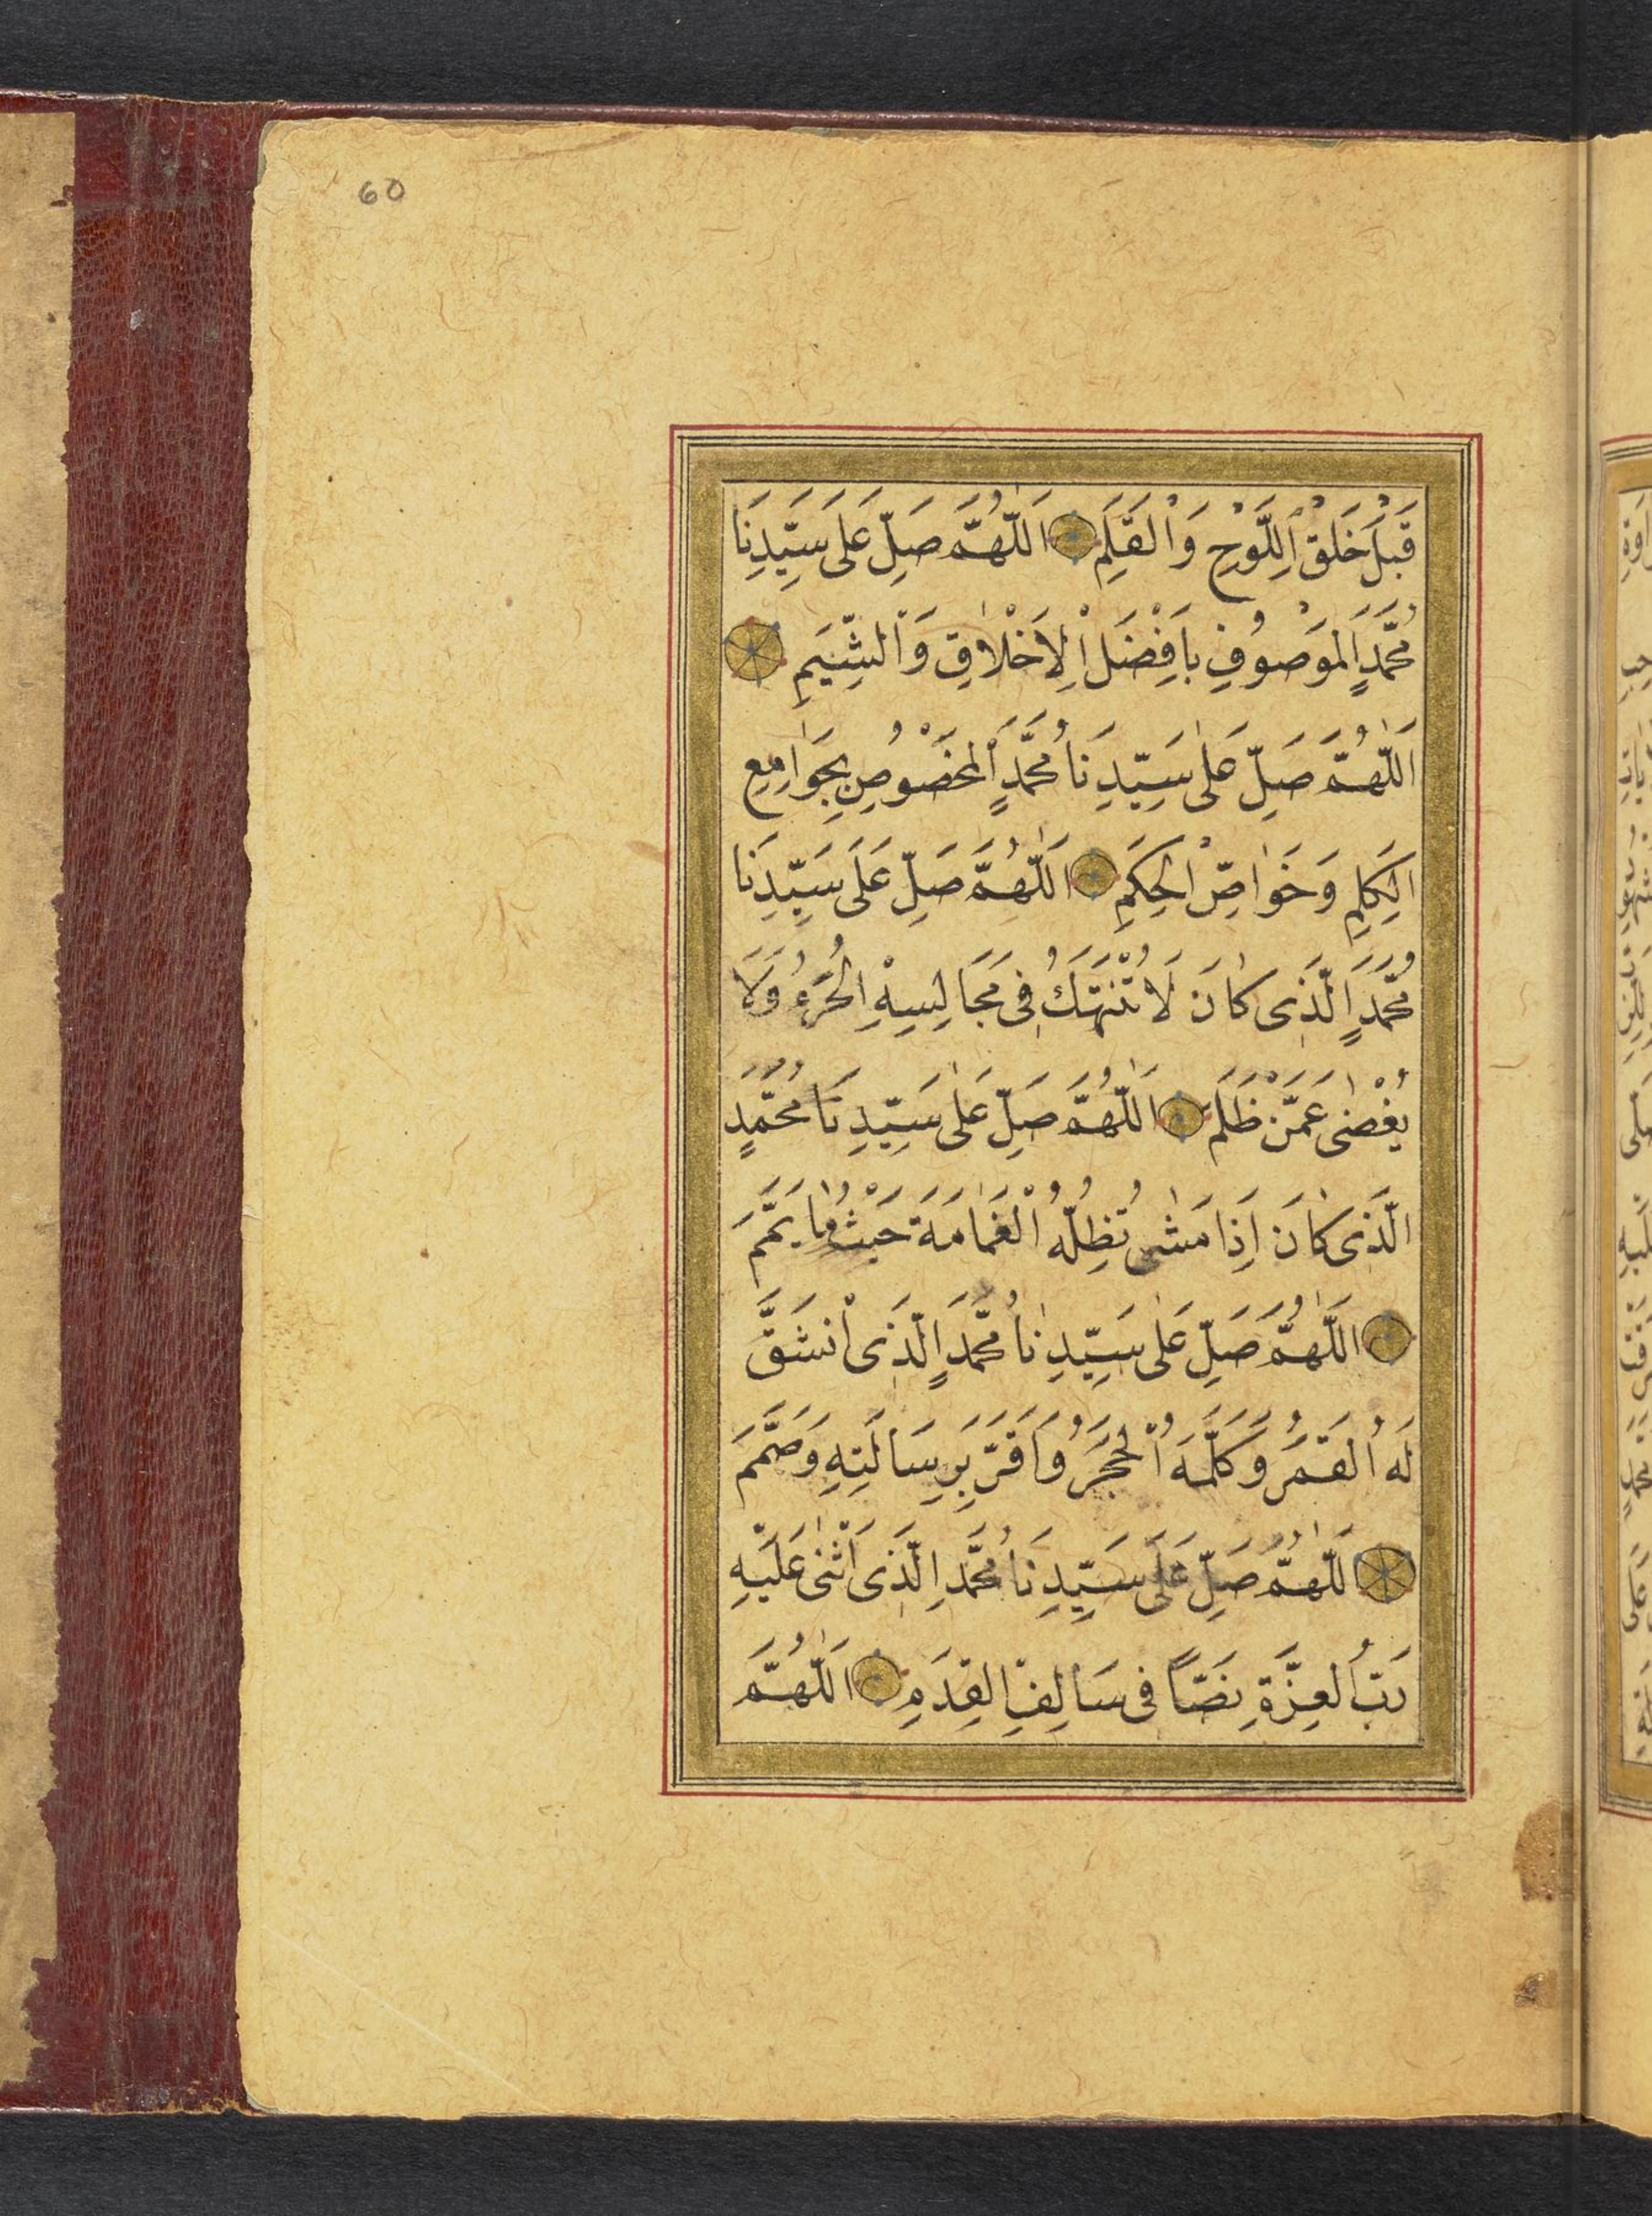 60
قَبْلَ خَلْقِ اللَّوْحِ وَالْقَلَمِ اَللّٰهُمَّ صَلِّ عَلٰى سَيِّدِنَا
مُحَمَّدٍ الْمَوْصُوفِ بِاَفْضَلِ الْاَخْلَاقِ وَالشِّيَمِ
اَللّٰهُمَّ صَلِّ عَلٰى سَيِّدِنَا مُحَمَّدٍ الْمَخْصُوصِ بِجَوَامِعِ
الْكَلِمِ وَخَوَاصِّ الْحِكَمِ اَللّٰهُمَّ صَلِّ عَلَى سَيِّدِنَا
مُحَمَّدٍ الَّذِى كَانَ لَا تُنْتَهَكُ فِى مَجَالِسِهِ الْحُرَمُ وَلَا
يُغْضِى عَمَّنْ ظَلَمَ اَللّٰهُمَّ صَلِّ عَلٰى سَيِّدِنَا مُحَمَّدٍ
الَّذِى كَانَ اِذَا مَشٰى تُظِلُّهُ الْغَمَامَةُ حَيْثُ مَا يَمَّمَ
اَللّٰهُمَّ صَلِّ عَلٰى سَيِّدِنَا مُحَمَّدٍ الَّذِى انْشَقَّ
لَهُ الْقَمَرُ وَكَلَّمَهُ الْحَجَرُ وَاَقَرَّ بِرِسَالَتِهِ وَصَمَّمَ
اَللّٰهُمَّ صَلِّ عَلَى سَيِّدِنَا مُحَمَّدٍ الَّذِى اَثْنٰى عَلَيْهِ
رَبُّ الْعِزَّةِ نَصًّا فِى سَالِفِ الْقِدَمِ اَللّٰهُمَّ